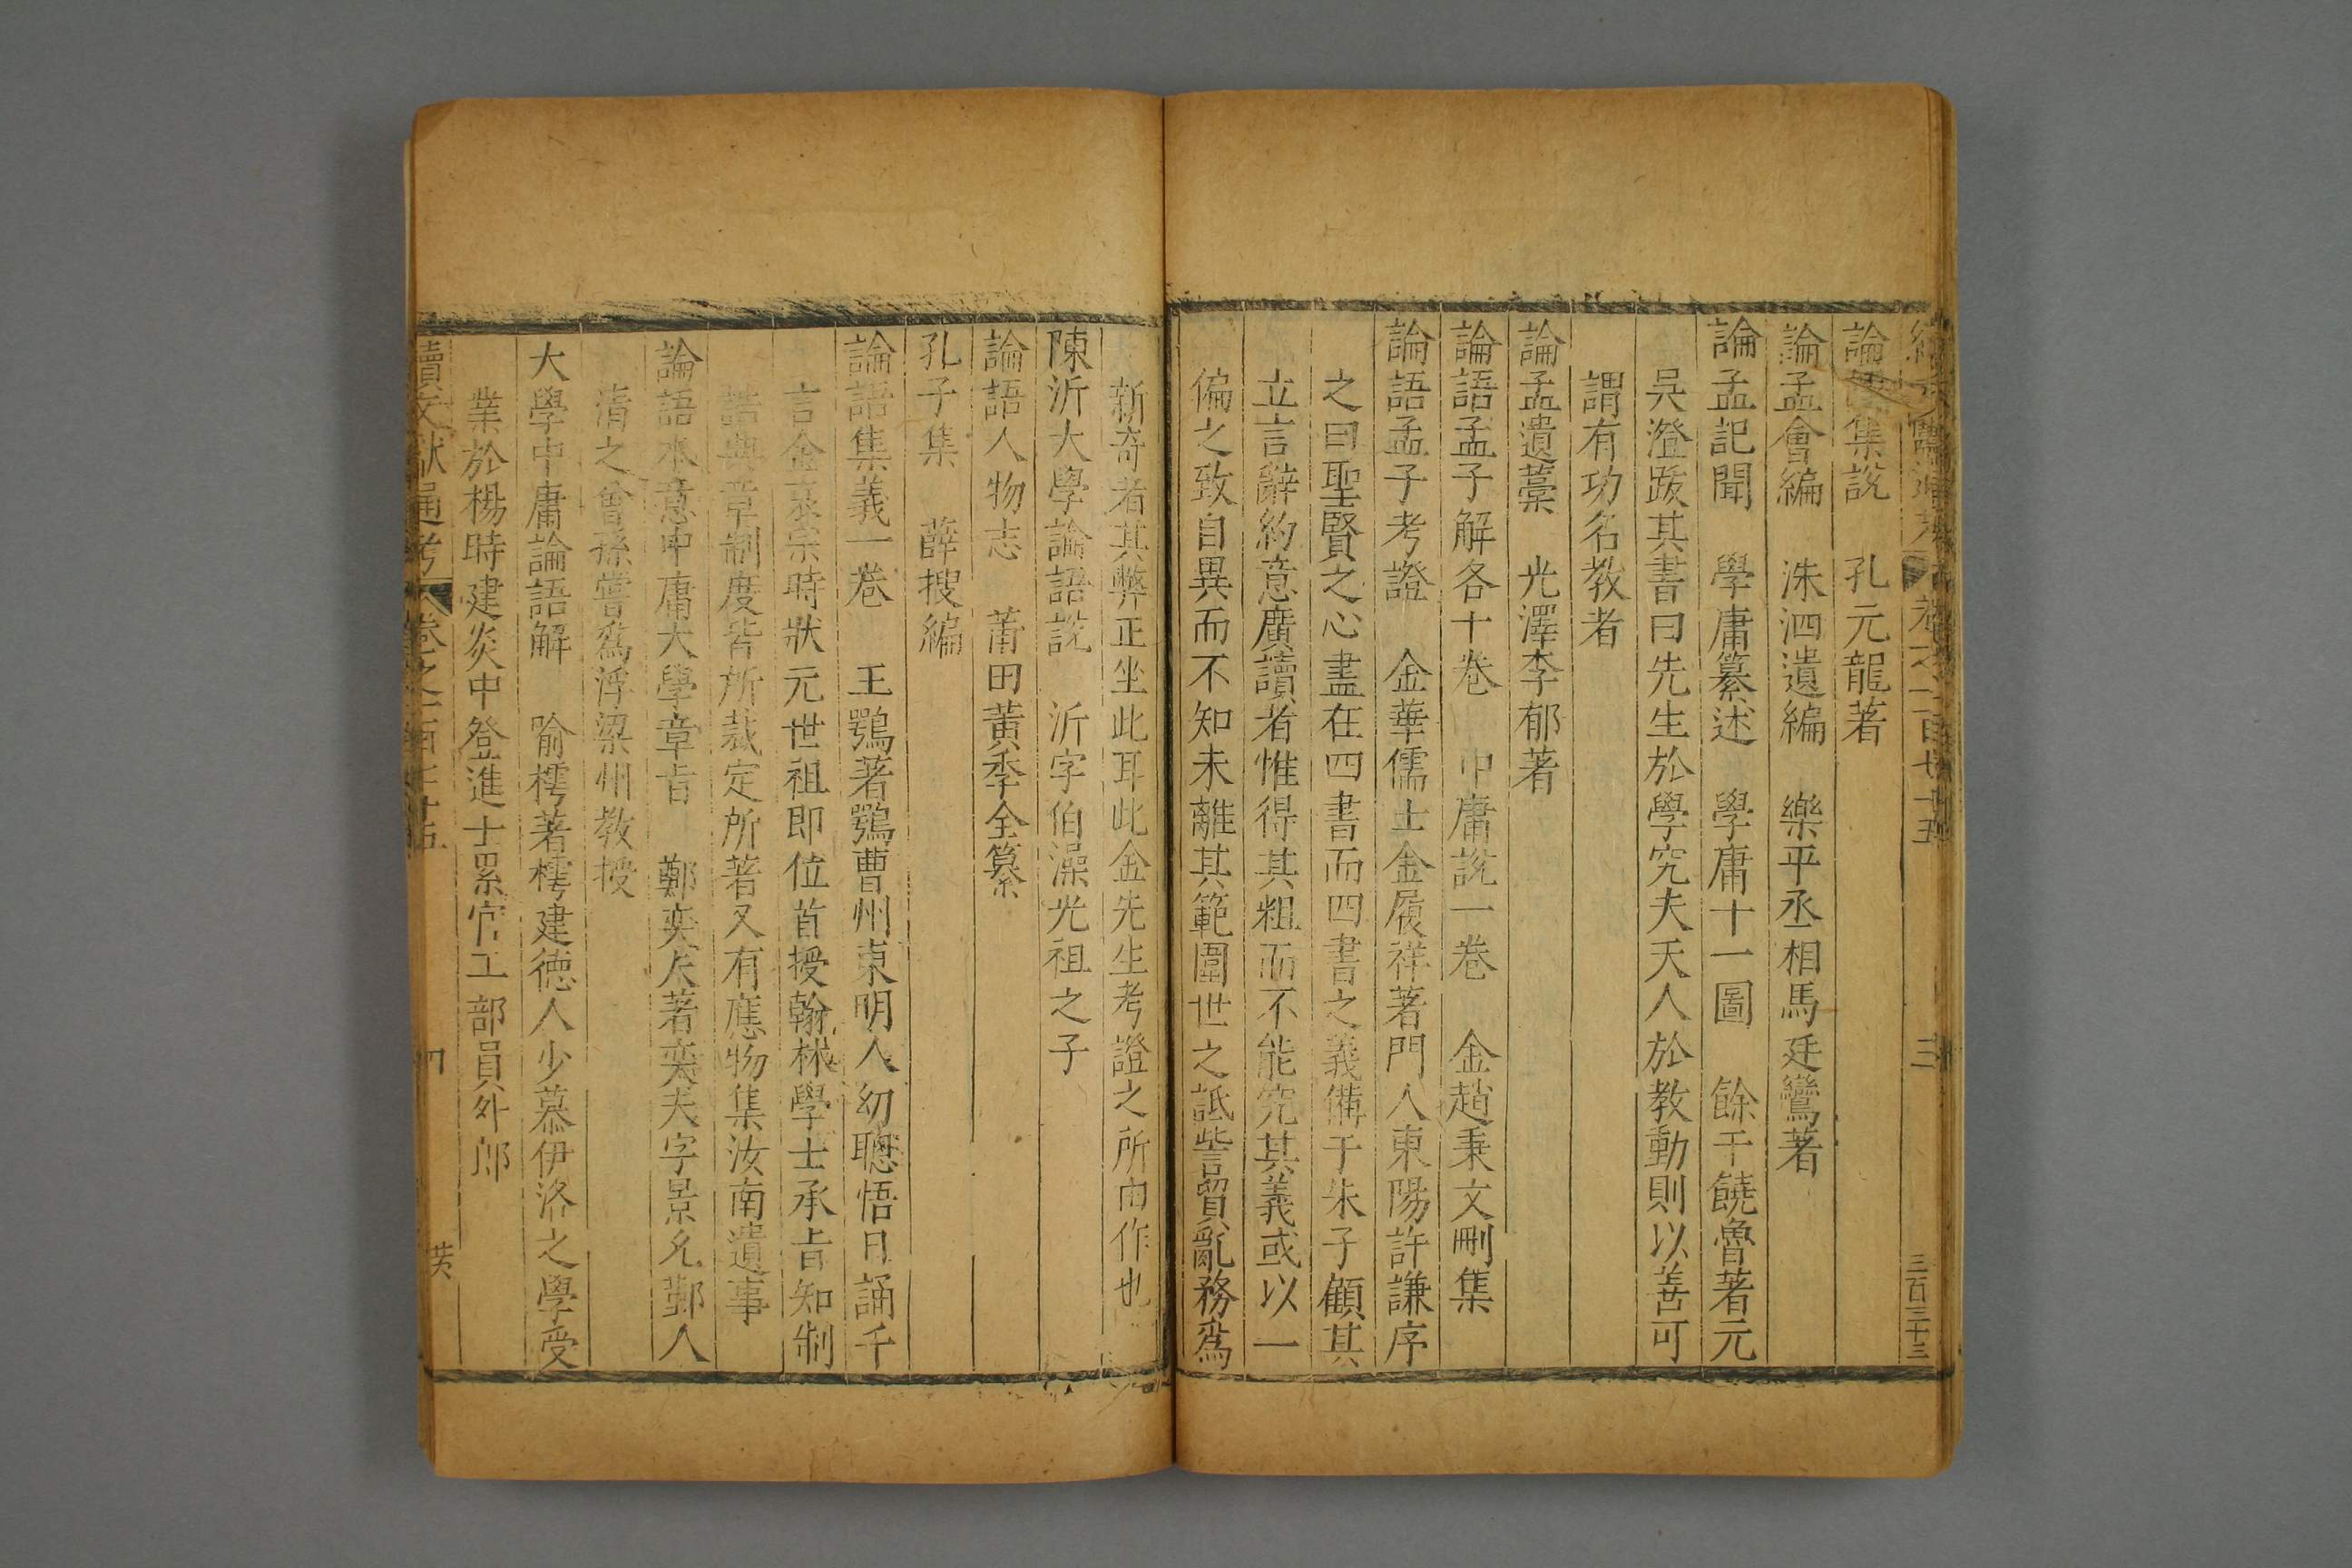 卷之一百七十五 三 三百三十三
論語集說 孔元龍著
論孟會編 洙泗遺編 樂平丞相馬廷鸞著
論孟記聞 學庸纂述 學庸十一圖 餘干饒魯著元
吳澄跋其書曰先生於學究夫天人於教動則以善可
謂有功名教者
論孟遺藁 光澤李郁著
論語孟子解各十卷 中庸說一卷 金趙秉文刪集
論語孟子考證 金華儒士金履祥著門人東陽許謙序
之曰聖賢之心盡在四書而四書之義備于朱子顧其
立言辭約意廣讀者惟得其粗而不能究其義或以一
偏之致自異而不知未離其範圍世之詆訾貿亂務爲
新奇者其弊正坐此耳此金先生考證之所由作也
陳沂大學論語說 沂字伯澡光祖之子
論語人物志 莆田黃季全纂
孔子集 薛搜編
論語集義一卷 王鶚著鶚曹州東明人幼聰悟日誦千
言金哀宗時狀元世祖即位首授翰林學士承旨知制
誥典章制度皆所裁定所著又有應物集汝南遺事
論語本意中庸大學章旨 鄭奕夫著奕夫字景允鄞人
清之曾孫嘗爲浮梁州教授
大學中庸論語解 喻樗著樗建德人少慕伊洛之學受
業於楊時建炎中登進士累官工部員外郎
續文獻通考 卷之一百七十五 四